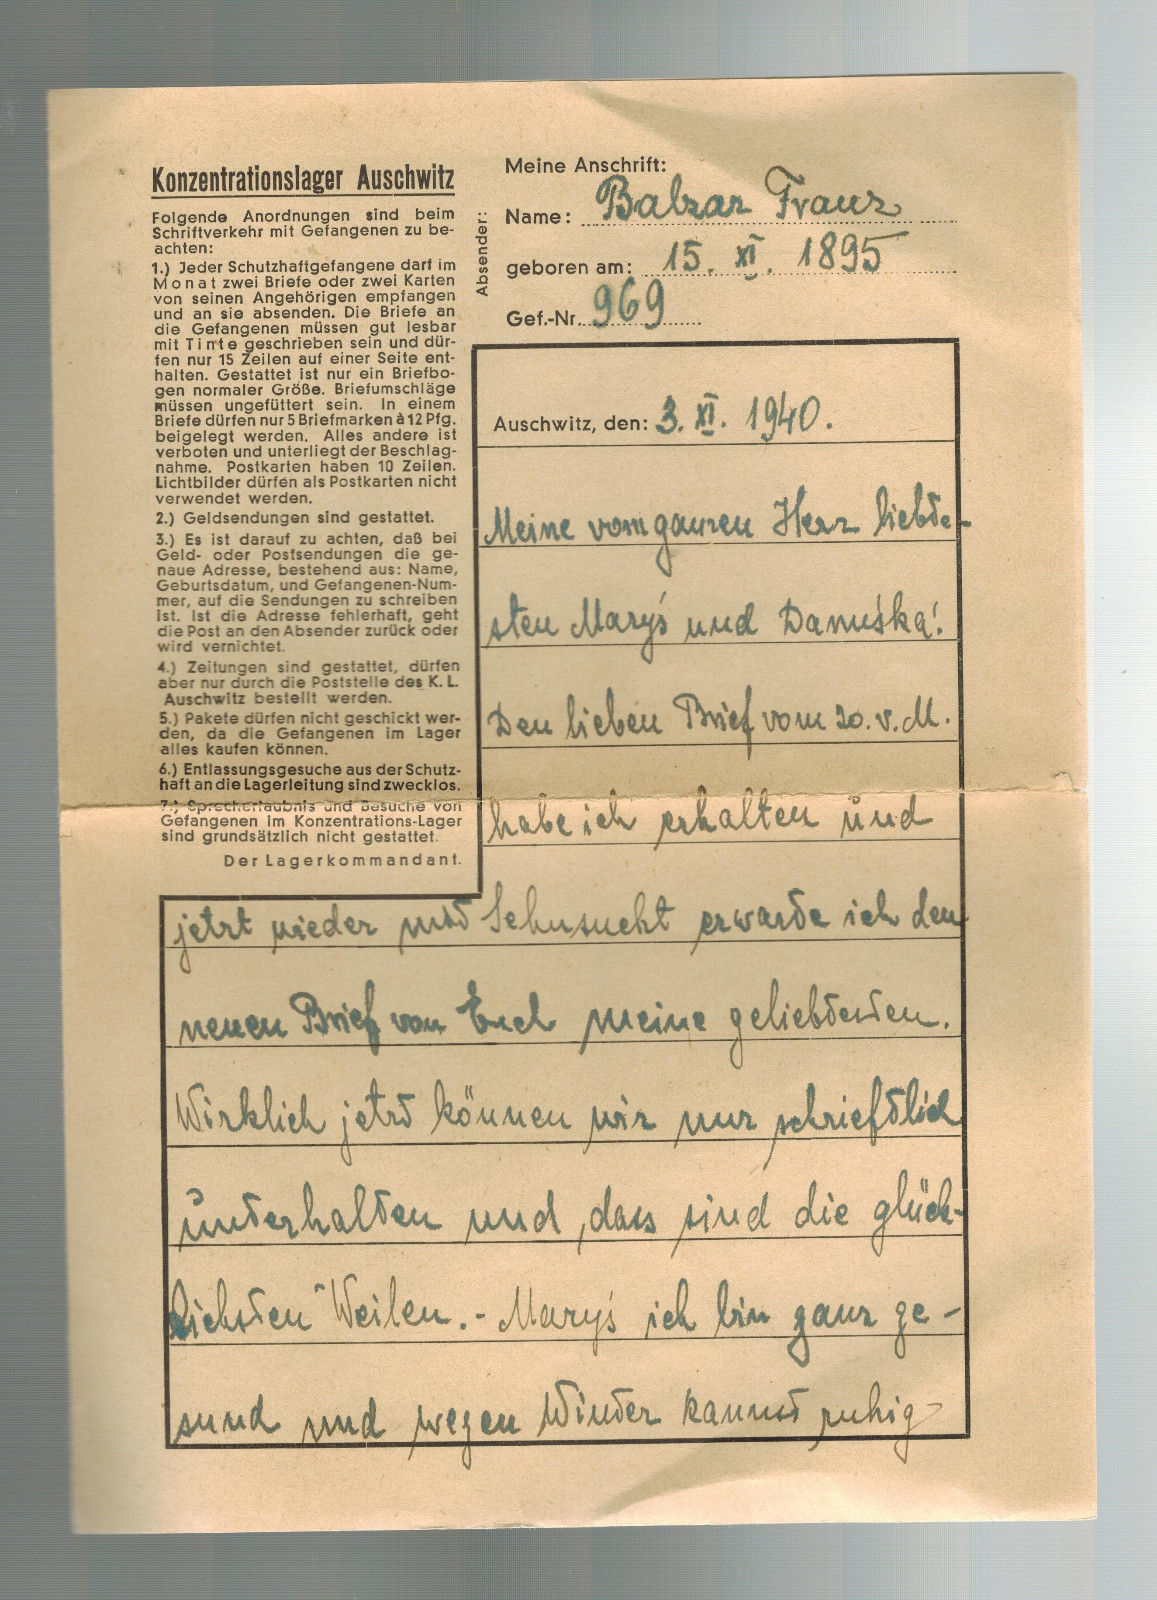 Konzentrationslager Auschwitz
Folgende Anordnungen sind beim
Schriftverkehr mit Gefangenen zu be-
achten:
1.) Jeder Schutzhaftgefangene darf im
Monat zwei Briefe oder zwei Karten
von seinen Angehörigen empfangen
und an sie absenden. Die Briefe an
die Gefangenen müssen gut lesbar
mit Tinte geschrieben sein und dür-
fen nur 15 Zeilen auf einer Seite ent-
halten. Gestattet ist nur ein Briefbo-
gen normaler Größe. Briefumschläge
müssen ungefüttert sein. In einem
Briefe dürfen nur 5 Briefmarken à 12 Pfg.
beigelegt werden. Alles andere ist
verboten und unterliegt der Beschlag-
nahme. Postkarten haben 10 Zeilen.
Lichtbilder dürfen als Postkarten nicht
verwendet werden.
2.) Geldsendungen sind gestattet.
3.) Es ist darauf zu achten, daß bei
Geld- oder Postsendungen die ge-
naue Adresse, bestehend aus: Name,
Geburtsdatum, und Gefangenen-Num-
mer, auf die Sendungen zu schreiben
ist. Ist die Adresse fehlerhaft, geht
die Post an den Absender zurück oder
wird vernichtet.
4.) Zeitungen sind gestattet, dürfen
aber nur durch die Poststelle des K. L.
Auschwitz bestellt werden.
5.) Pakete dürfen nicht geschickt wer-
den, da die Gefangenen im Lager
alles kaufen können.
6.) Entlassungsgesuche aus der Schutz-
haft an die Lagerleitung sind zwecklos.
7.) Sprecherlaubnis und Besuche von
Gefangenen im Konzentrations-Lager
sind grundsätzlich nicht gestattet.
Der Lagerkommandant.
Absender:
Meine Anschrift:
Name: Balzar Franz
geboren am: 15. XI. 1895
Gef.-Nr. 969
Auschwitz, den: 3. XI. 1940.
Meine vom ganzen Herz liebste-
sten Maryś und Danuśka!
Den lieben Brief vom 20. v. M.
habe ich erhalten und
jetzt wieder mit Sehnsucht erwarte ich den
neuen Brief von Euch meine geliebtesten.
Wirklich jetzt können wir nur schrieftlich
unterhalten und, dass sind die glück-
lichsten Weilen.- Maryś ich bin ganz ge-
sund und wegen Winter kannst ruhig